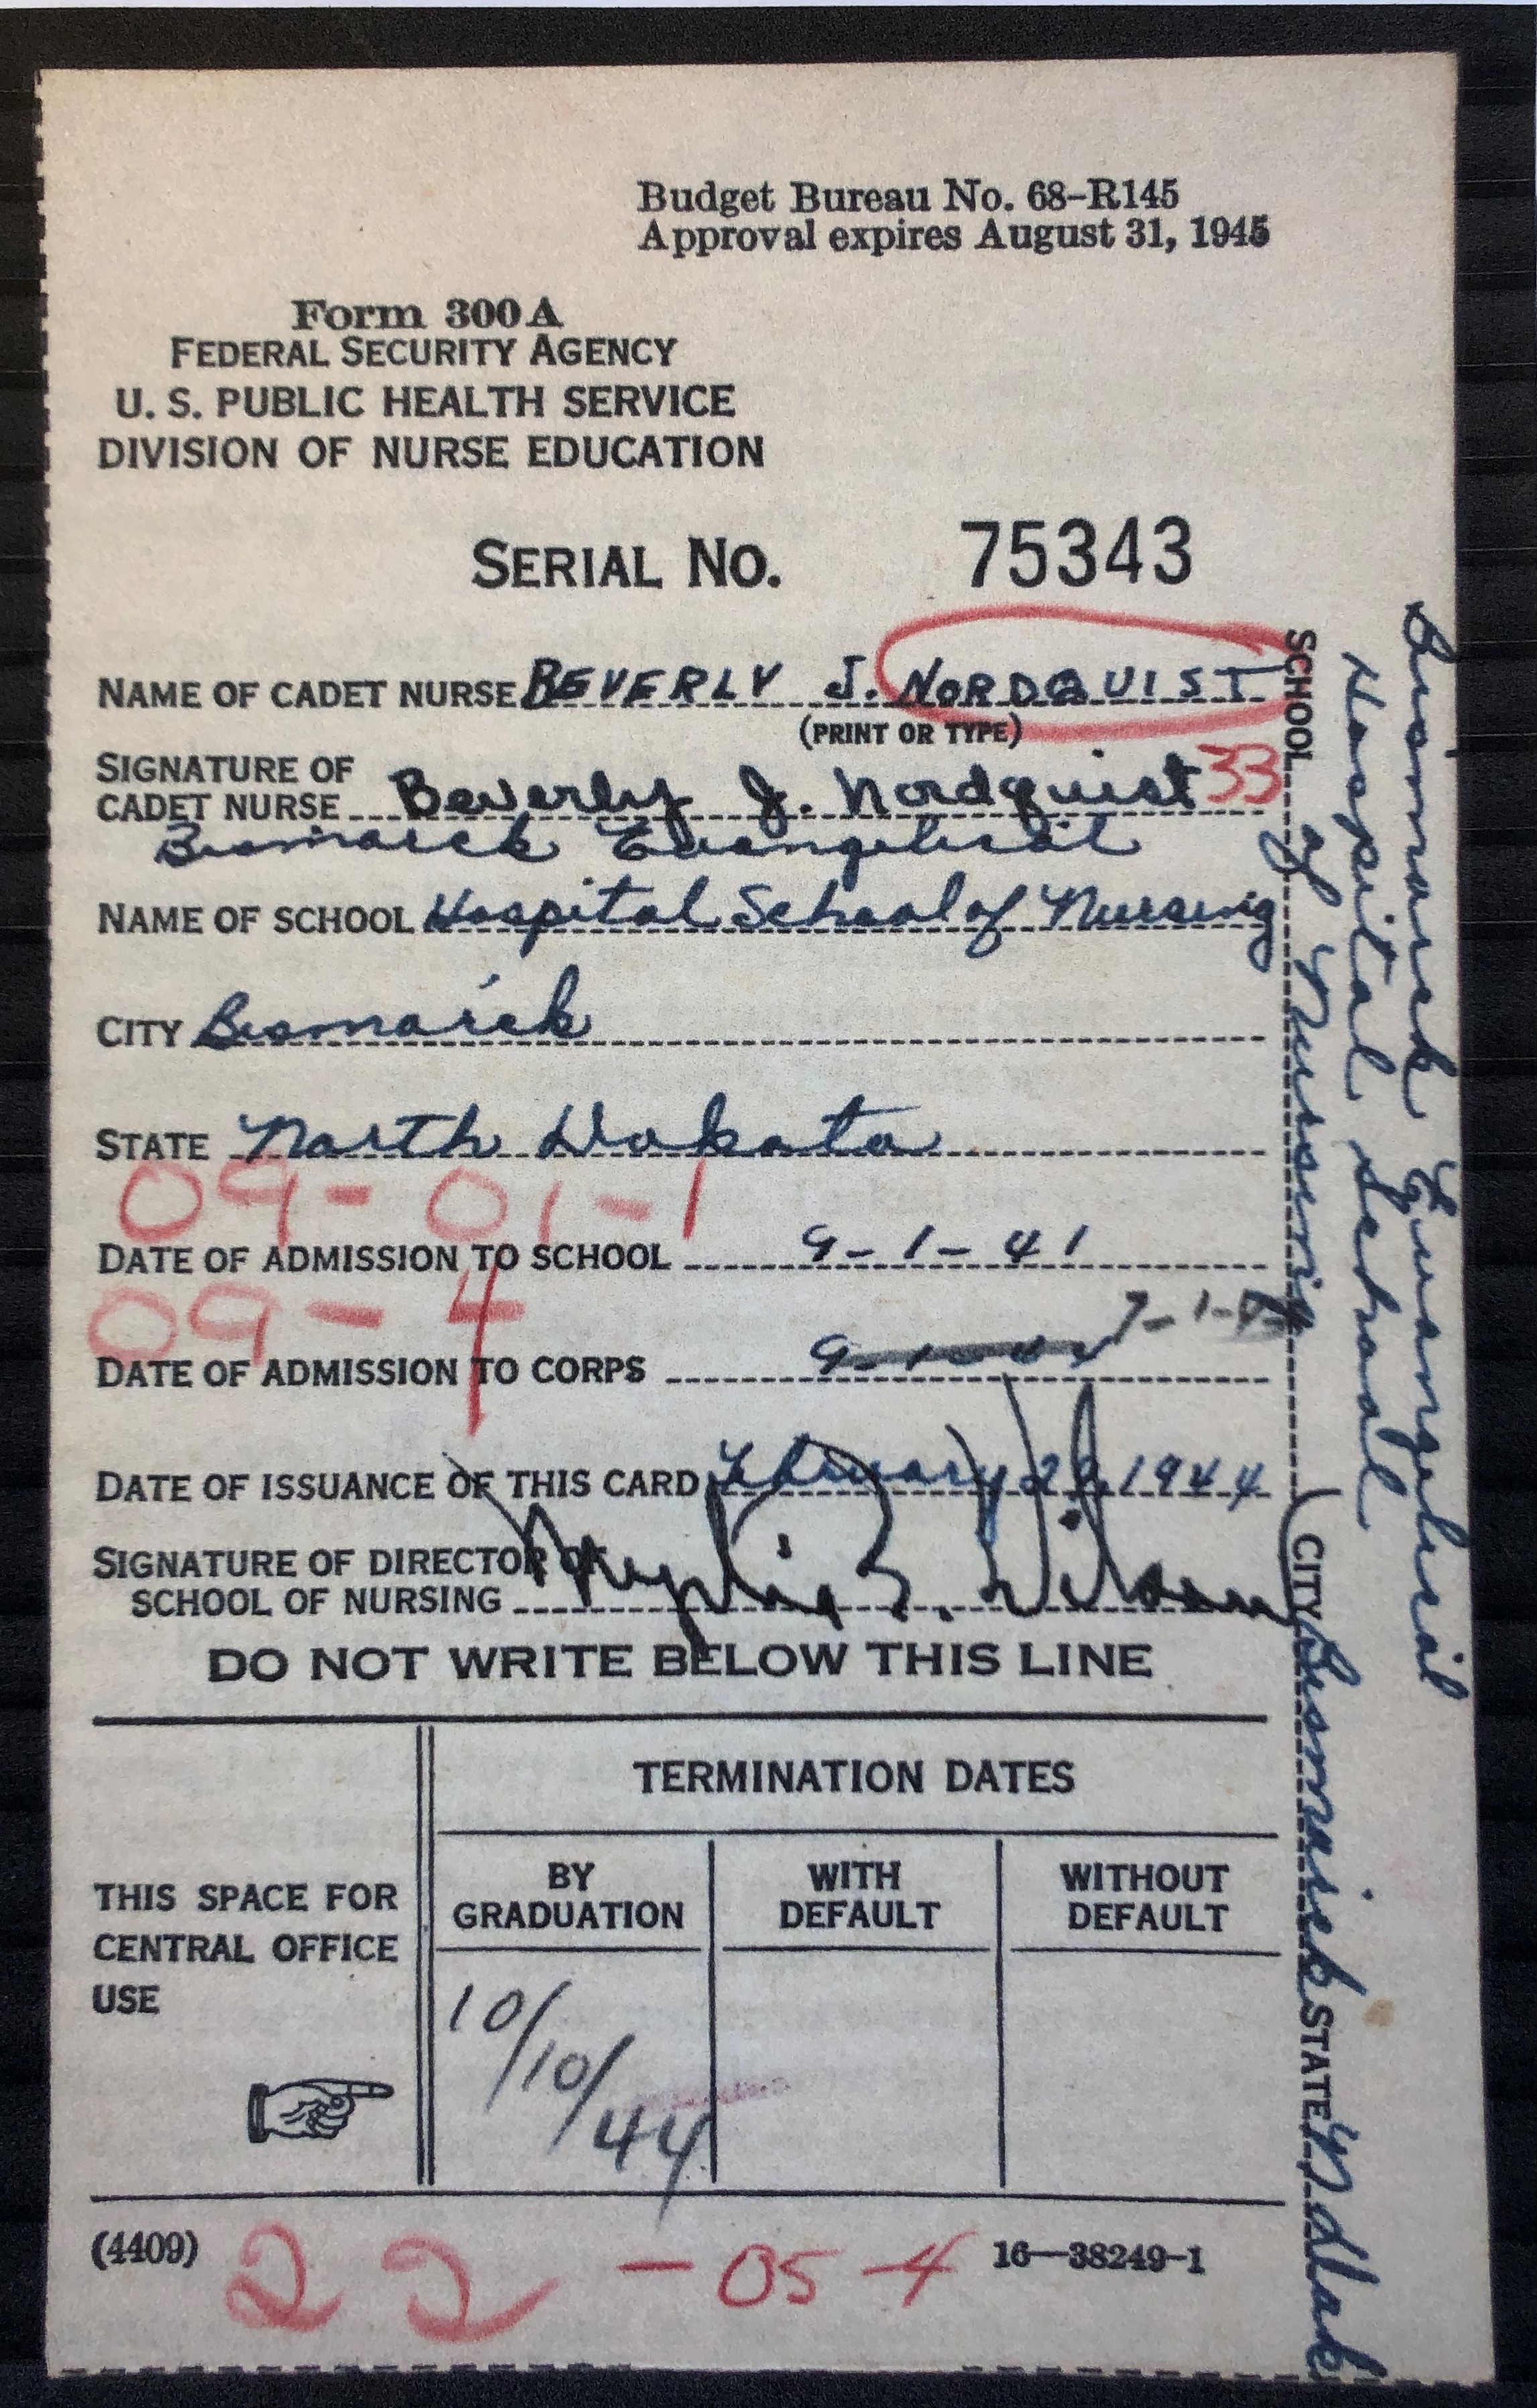 Budget Bureau No. 68-R145
Approval expires August 31, 1945
Form 300A
FEDERAL SECURITY AGENCY
U. S. PUBLIC HEALTH SERVICE
DIVISION OF NURSE EDUCATION
SERIAL NO. 75343
NAME OF CADET NURSE BEVERLY J. NORDQUIST
(PRINT OR TYPE)
SIGNATURE OF
CADET NURSE Beverly J. Nordquist 33
Bismarck Evangelical
NAME OF SCHOOL Hospital School of Nursing
CITY Bismarck
STATE North Dakota
09-01-1
DATE OF ADMISSION TO SCHOOL 9-1-41
09-4
DATE OF ADMISSION TO CORPS 7-1-
DATE OF ISSUANCE OF THIS CARD February 29, 1944
SIGNATURE OF DIRECTOR OF
SCHOOL OF NURSING B. Wilson
DO NOT WRITE BELOW THIS LINE
TERMINATION DATES
THIS SPACE FOR
CENTRAL OFFICE
USE
BY
GRADUATION
WITH
DEFAULT
WITHOUT
DEFAULT
10/10/44
(4409) 22-05-4 16—38249-1
Bismarck Evangelical
Hospital School
SCHOOL of Nursing CITY Bismarck STATE N Dak